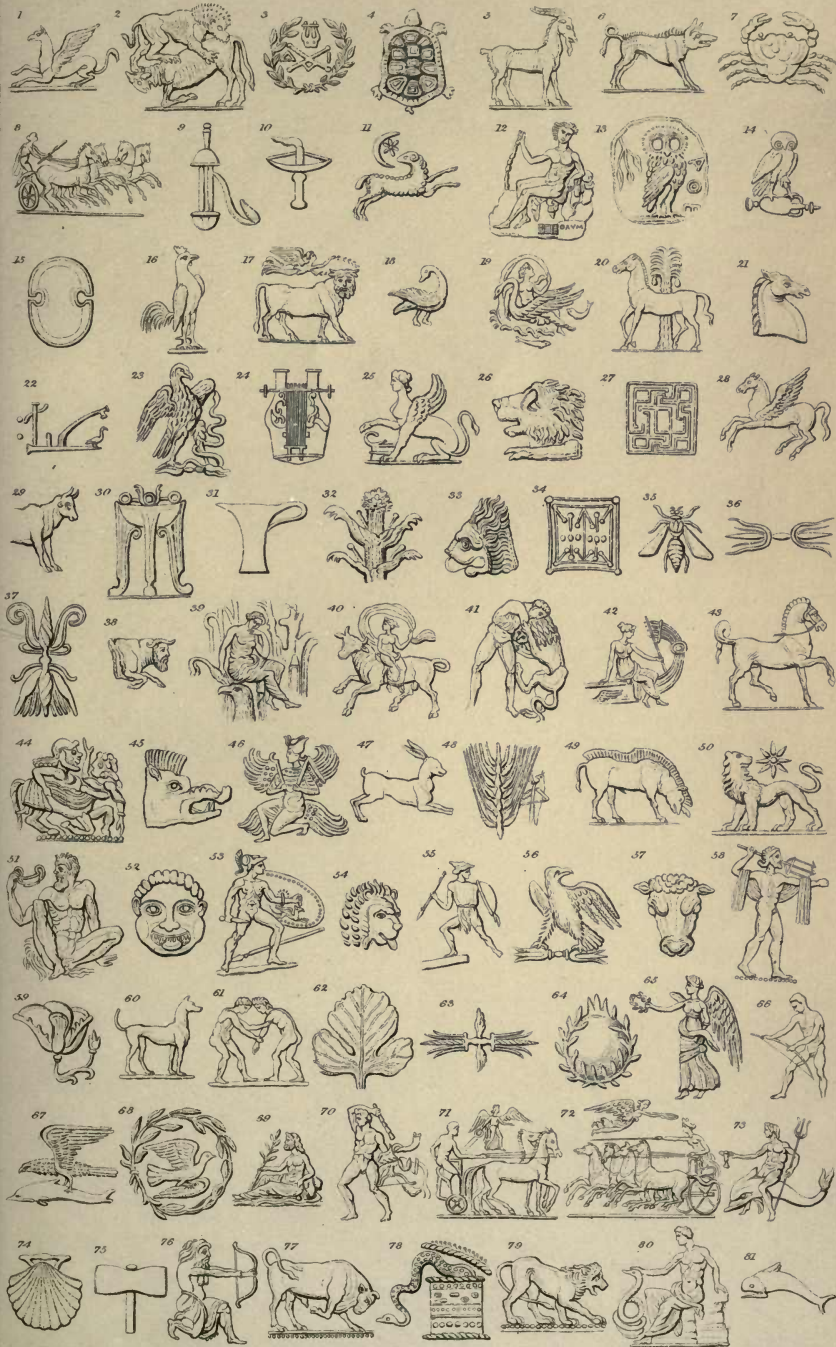 1 2 3 4 5 6 7
8 9 10 11 12 13 14
15 16 17 18 19 20 21
22 23 24 25 26 27 28
29 30 31 32 33 34 35 36
37 38 39 40 41 42 43
44 45 46 47 48 49 50
51 52 53 54 55 56 57 58
59 60 61 62 63 64 65 66
67 68 69 70 71 72 73
74 75 76 77 78 79 80 81